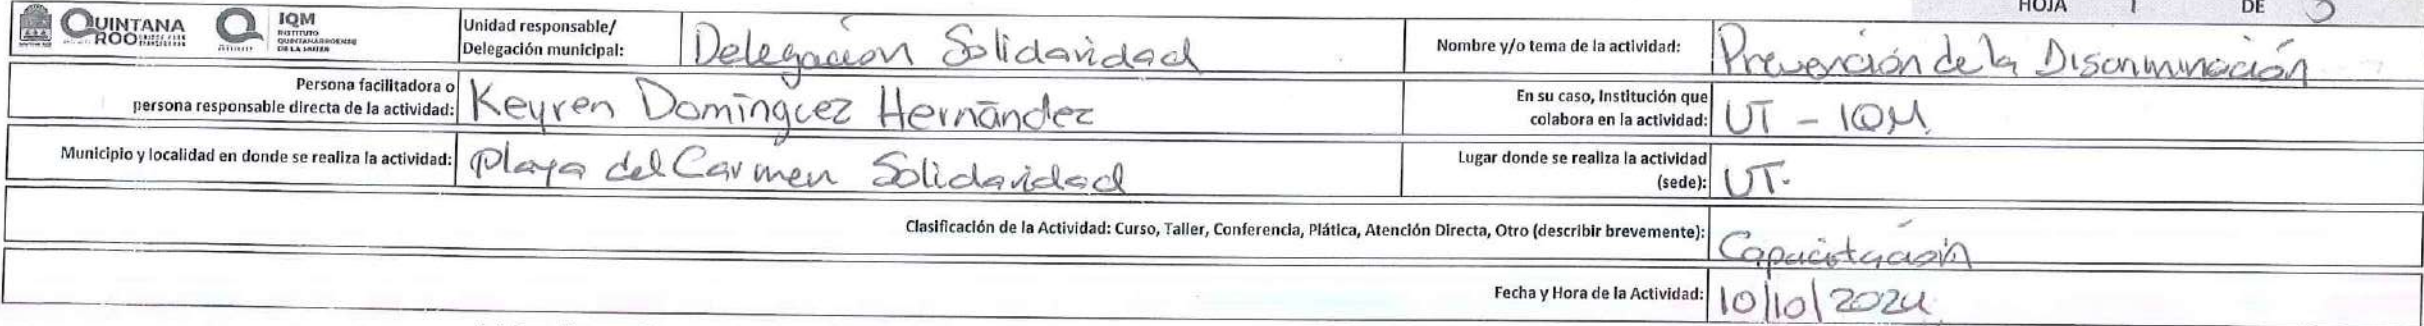 HOJA 1 DE 3
QUINTANA ROO
IQM INSTITUTO QUINTANARROENSE DE LA MUJER
Unidad responsable/ Delegación municipal: Delegación Solidaridad
Nombre y/o tema de la actividad: Prevención de la Discriminación
Persona facilitadora o persona responsable directa de la actividad: Keyren Domínguez Hernández
En su caso, Institución que colabora en la actividad: UT - IQM
Municipio y localidad en donde se realiza la actividad: Playa del Carmen Solidaridad
Lugar donde se realiza la actividad (sede): UT.
Clasificación de la Actividad: Curso, Taller, Conferencia, Plática, Atención Directa, Otro (describir brevemente): Capacitación
Fecha y Hora de la Actividad: 10/10/2024